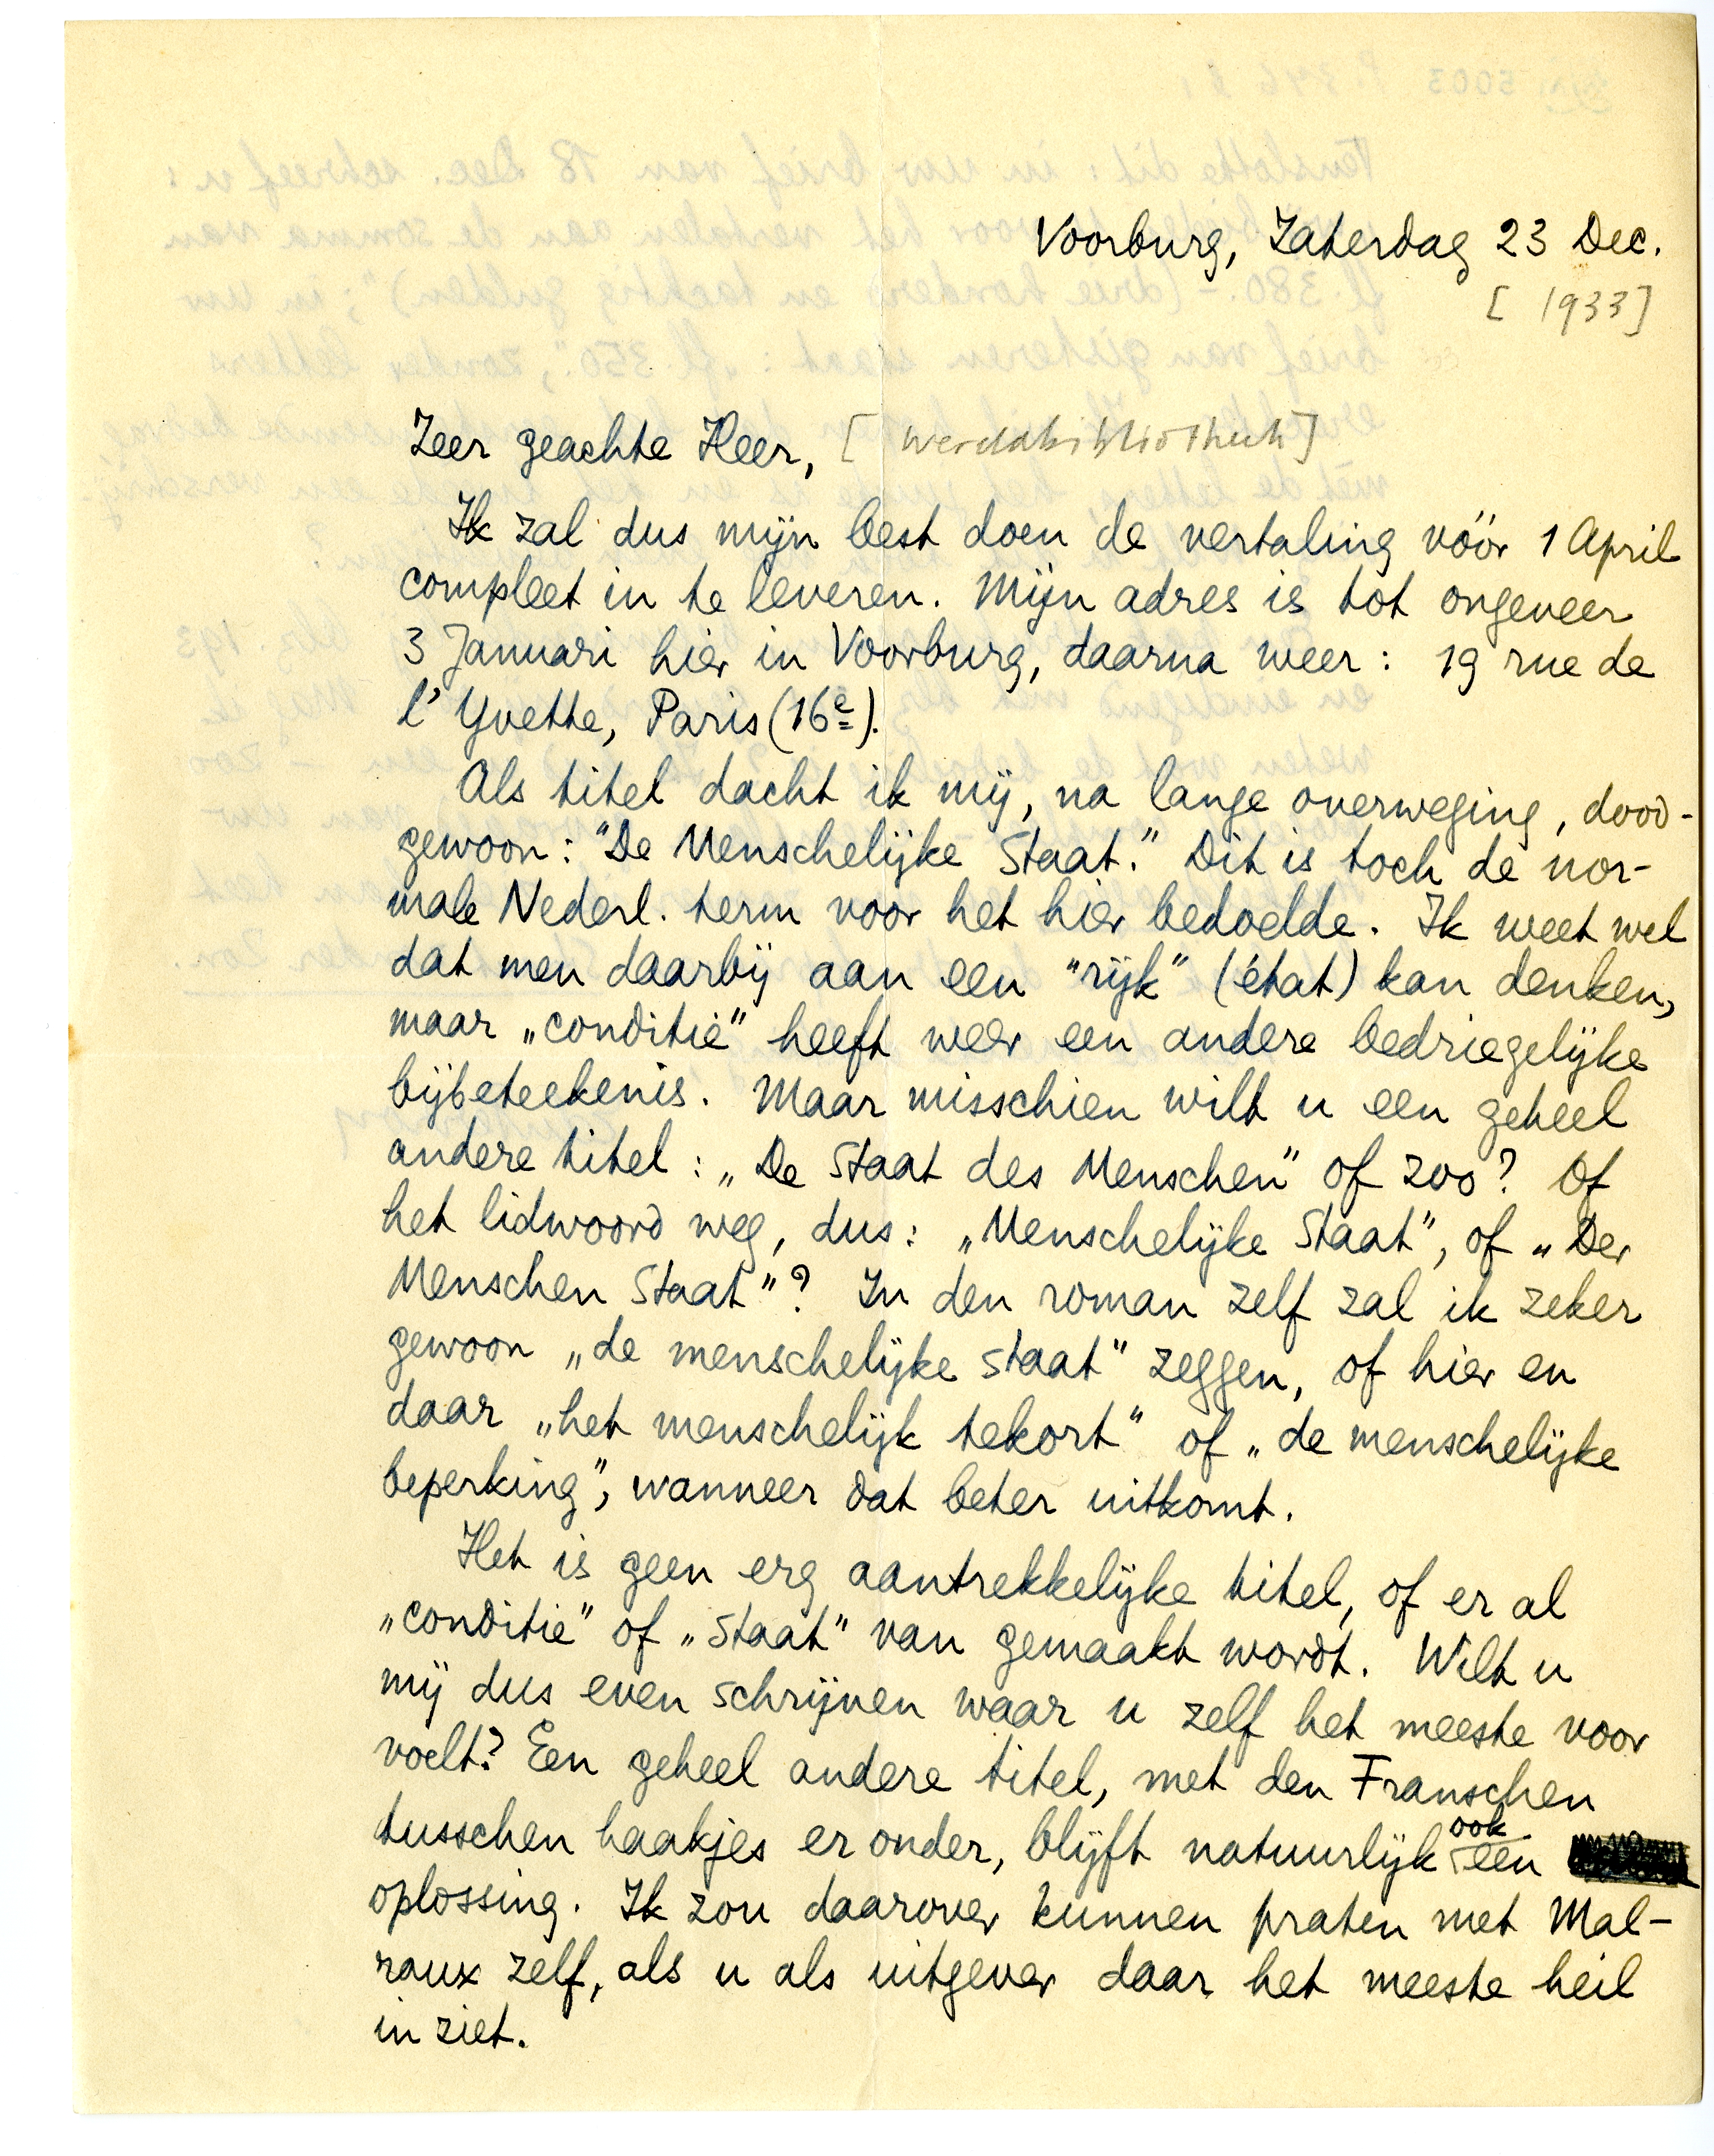 Voorburg, Zaterdag 23 Dec.
[ 1933]
Zeer geachte Heer, [ Wereldbibliotheek]
Ik zal dus mijn best doen de vertaling vóór 1 April
compleet in te leveren. Mijn adres is tot ongeveer
3 Januari hier in Voorburg, daarna weer: 19 rue de
l'Yvette, Paris (16e).
Als titel dacht ik mij, na lange overweging, dood-
gewoon: "De Menschelijke Staat." Dit is toch de nor-
male Nederl. term voor het hier bedoelde. Ik weet wel
dat men daarbij aan een "rijk" (état) kan denken,
maar „conditie" heeft weer een andere bedriegelijke
bijbeteekenis. Maar misschien wilt u een geheel
andere titel: „De Staat des Menschen" of zoo? Of
het lidwoord weg, dus: „Menschelijke Staat", of „Der
Menschen Staat"? In den roman zelf zal ik zeker
gewoon „de menschelijke staat" zeggen, of hier en
daar „het menschelijk tekort" of „de menschelijke
beperking", wanneer dat beter uitkomt.
Het is geen erg aantrekkelijke titel, of er al
„conditie" of „staat" van gemaakt wordt. Wilt u
mij dus even schrijven waar u zelf het meeste voor
voelt? Een geheel andere titel, met den Franschen
tusschen haakjes er onder, blijft natuurlijk ook een
oplossing. Ik zou daarover kunnen praten met Mal-
raux zelf, als u als uitgever daar het meeste heil
in ziet.